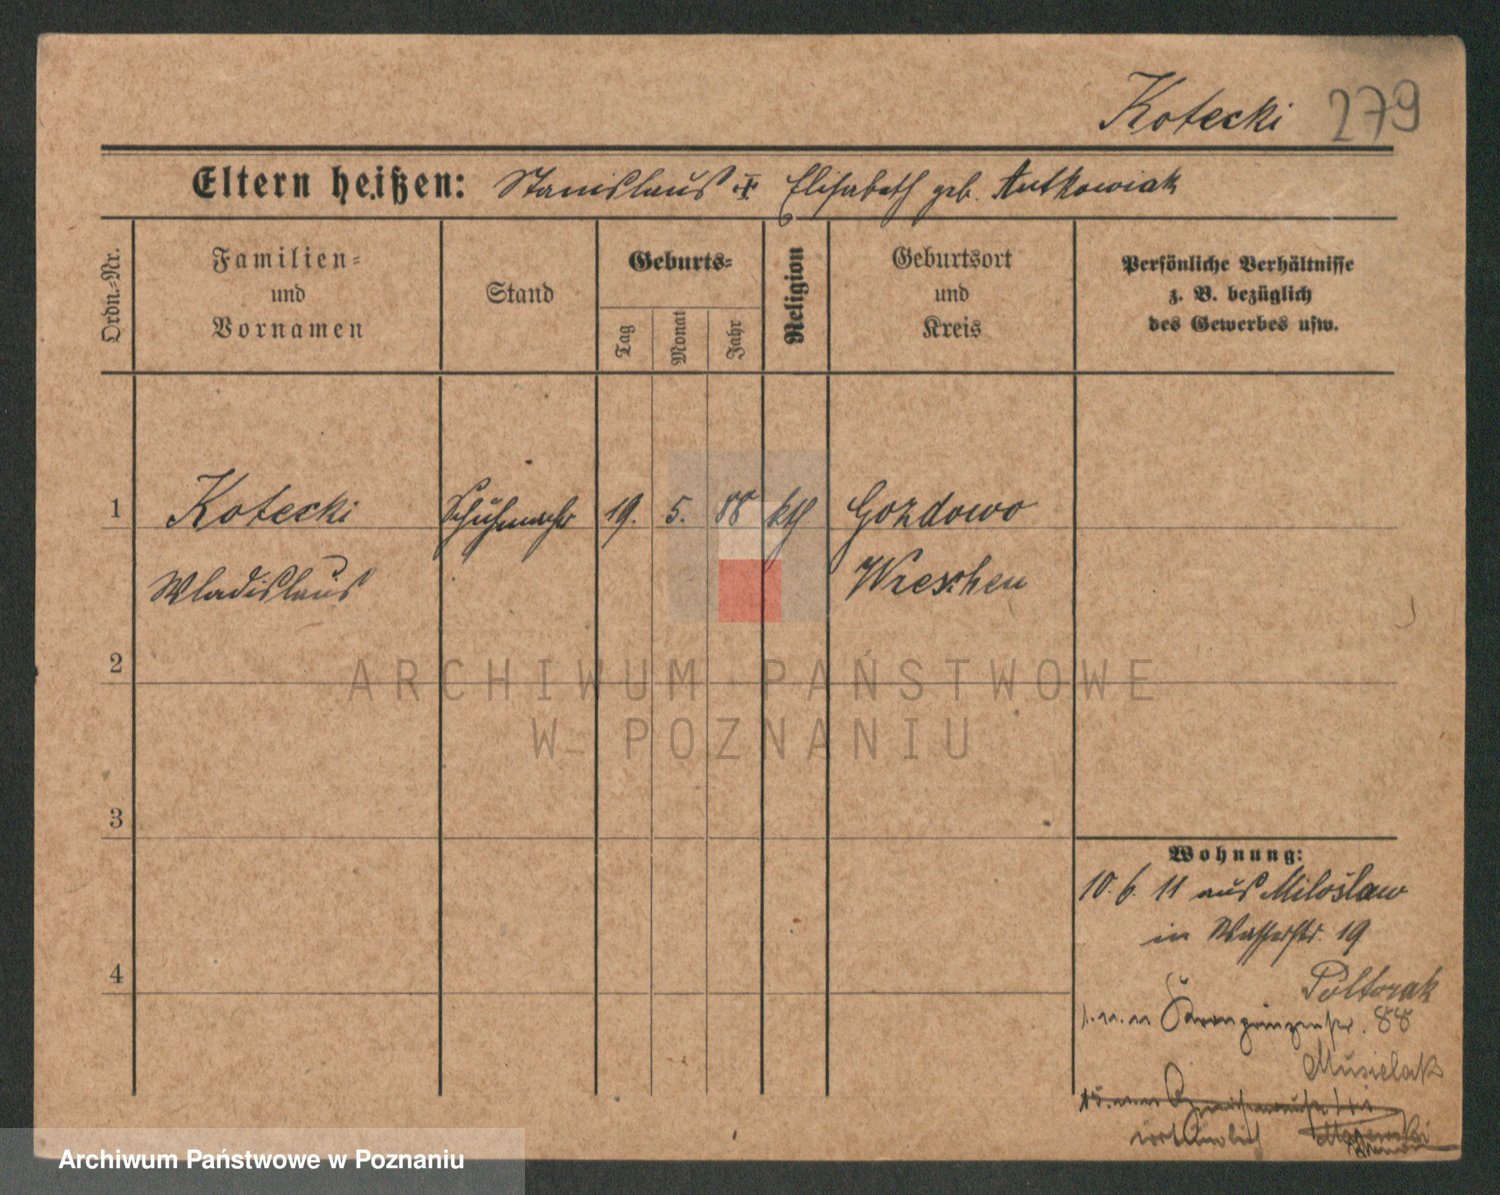 Kotecki 279
Eltern heißen: Stanislaus + Elisabeth geb. Antkowiak
Ordn.-Nr.
Familien-
und
Vornamen
Stand
Geburts-
Tag
Monat
Jahr
Religion
Geburtsort
und
Kreis
Persönliche Verhältnisse
z. B. bezüglich
des Gewerbes usw.
1 Kotecki Schuhmacher 19. 5. 88 kth Gozdowo
Wladislaus Wreschen
2
3
4
Wohnung:
10. 6. 11 aus Miloslaw
in Wasserstr. 19
Poltorak
Kronprinzenstr. 88
Musielak
ARCHIWUM PAŃSTWOWE
W POZNANIU
Archiwum Państwowe w Poznaniu